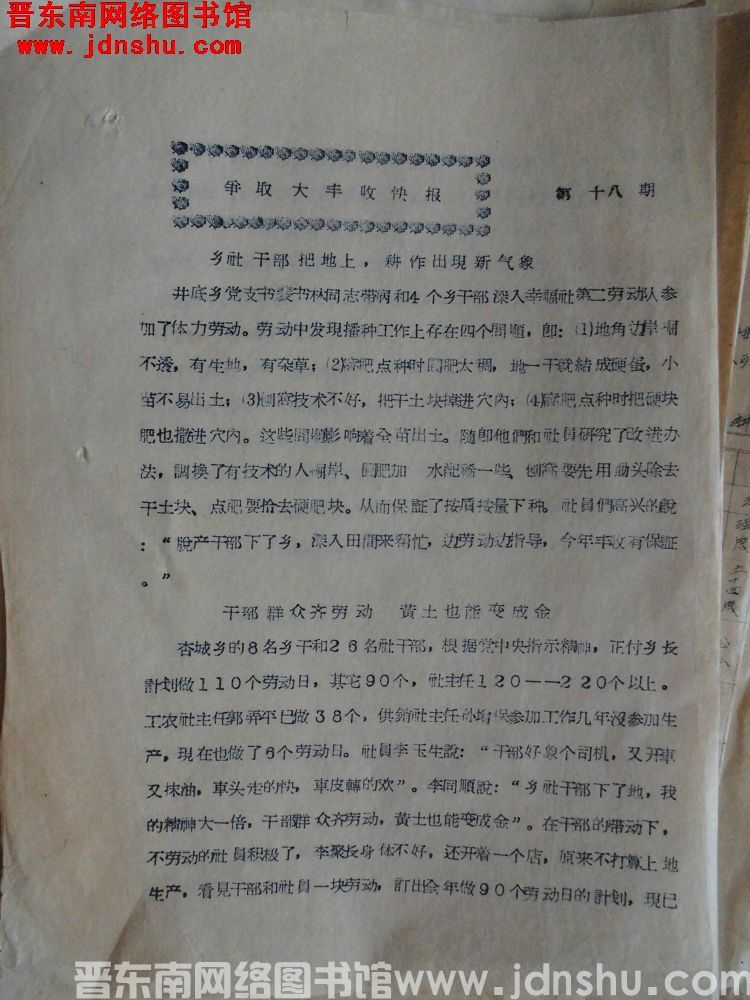 晋东南网络图书馆
www.jdnshu.com
争取大丰收快报 第十八期
乡社干部把地上，耕作出現新气象
井底乡党支书裴书林同志带病和4个乡干部深入幸福社第二劳动队参
加了体力劳动。劳动中发現播种工作上存在四个問題，即：⑴地角边岸
不透，有生地，有杂草；⑵窩肥点种时圊肥太稠，地一干就結成硬蛋，小
苗不易出土；⑶刨窩技术不好，把干土块擁进穴內；⑷窩肥点种时把硬块
肥也撒进穴內。这些問題影响着全苗出土。随即他們和社員研究了改进办
法，調换了有技术的人岸、圊肥加 水配稀一些、刨窩要先用鋤头除去
干土块、点肥要拾去硬肥块。从而保証了按质按量下种。社員們高兴的說
：“脫产干部下了乡，深入田間来帮忙，边劳动边指导，今年丰收有保証
。”
干部群众齐劳动 黃土也能变成金
杏城乡的8名乡干和26名社干部，根据党中央指示精神，正付乡长
計划做110个劳动日，其它90个，社主任120——220个以上。
工农社主任郭弄平已做38个，供銷社主任孙增保参加工作几年沒参加生
产，現在也做了6个劳动日。社員李玉生說：“干部好象个司机，又开車
又抹油，車头走的快，車皮轉的欢”。李同順說：“乡社干部下了地，我
的精神大一倍，干部群众齐劳动，黃土也能变成金”。在干部的带动下，
不劳动的社員积极了，李聚长身体不好，还开着一个店，原来不打算上地
生产，看見干部和社員一块劳动，訂出全年做90个劳动日的計划，現已
晋东南网络图书馆www.jdnshu.com